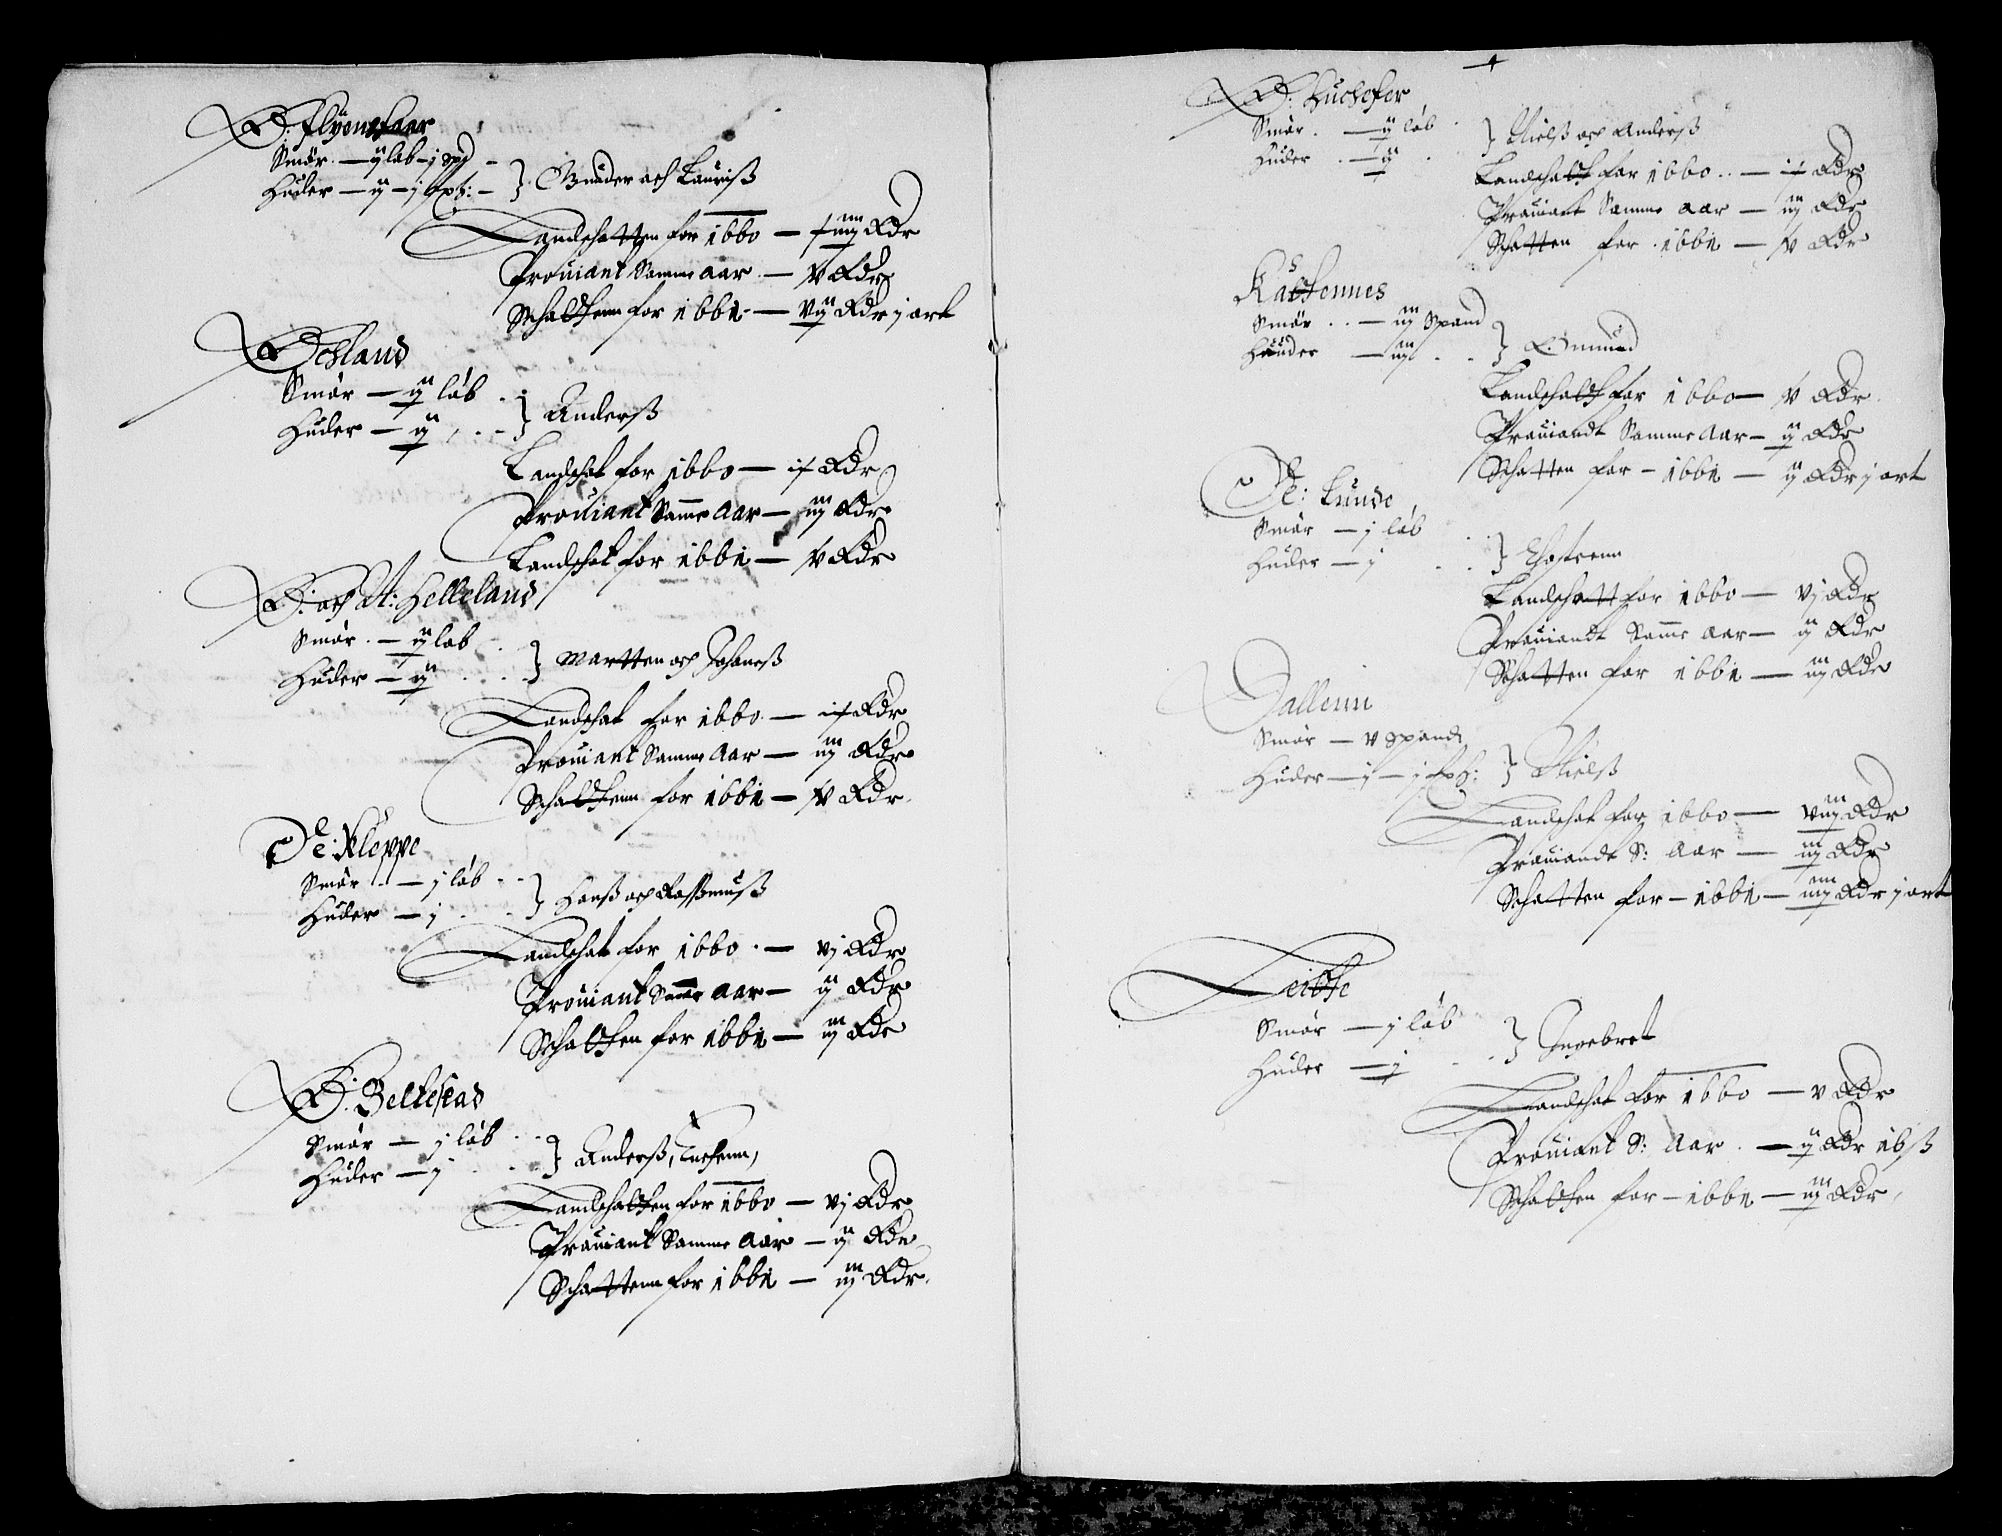 Ø: Flyenesaar
Smør. — ij løb — j spd
Huder — ij — j kalfsk: — } Gunder och Lauriss
Landschatten for 1660 — xiiij Rdr
Prouiant Samme aar — v Rdr
Schatthenn for 1661 — vij Rdr j ort
Øesland
Smør — ij løb
Huder — ij } Anderss
Landschat for 1660 — ix Rdr
Prouiant Samme Aar — iij Rdr
Landschat for 1661 — v Rdr
Ø: och N: Helleland
Smør. — ij løb
Huder — ij } Martten och Johaness
Landschat for 1660 — ix Rdr
Prouiant Samme Aar — iij Rdr
Schatthenn for 1661 — v Rdr
Ne: Kleppe
Smør — j løb
Huder — j } Hanss och Rassmuss
Landschat for 1660 — vj Rdr
Prouiant Samme aar — ij Rdr
Schatthen for 1661 — iij Rdr
Ø: Beltestad
Smør — j løb
Huder — j } Anderss,
Landschatthen for 1660 — vj Rdr
Prouiant Samme Aar — ij Rdr
Schattenn for 1661 — iij Rdr
4
Ø: Huchefer
Smør. — ij løb
Huder — ij } Nielss och Anderss
Landschatt for 1660 — ix Rdr
Prouiant Samme aar — iij Rdr
Schatten for 1661 — v Rdr
Rassennes
Smør — iij Spand
Huuder — iij } Omund
Landschatth for 1660 — v Rdr
Prouiandt Samme Aar — ij Rdr
Schatten for — 1661 — ij Rdr j ort
Ne: Lunde
Smør — j løb
Huder — j } Thostenn
Landschatt for 1660 — vj Rdr
Prouiandt Samme aar — ij Rdr
Schatten for 1661 — iij Rdr
Dallenn
Smør — v spand
Huder — j — j kalfsk: } Nielss
Landschat for 1660 — viij Rdr
Prouiande S: Aar — iij Rdr
Schatten for — 1661 — iiij Rdr j ort
Leithe
Smør — j løb
Huder — j } Ingebret
Landschat for 1660 — v Rdr
Prouiant S: Aar — ij Rdr 16 ß
Schatthen for — 1661 — iij Rdr